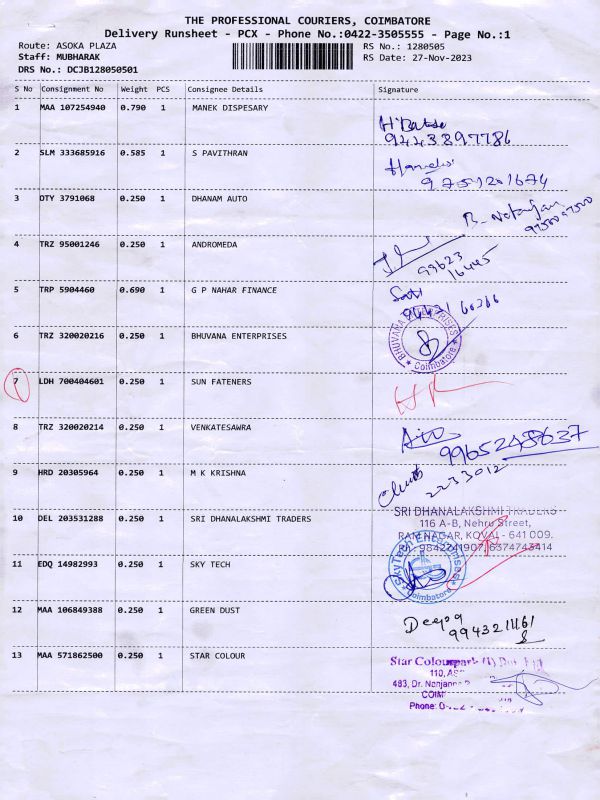 THE PROFESSIONAL COURIERS, COIMBATORE
Delivery Runsheet - PCX - Phone No.:0422-3505555 - Page No.:1
Route: ASOKA PLAZA
RS No.: 1280505
Staff: MUBHARAK
RS Date: 27-Nov-2023
DRS No.: DCJB128050501
S No Consignment No Weight PCS Consignee Details Signature
1 MAA 107254940 0.790 1 MANEK DISPESARY
9443897786
2 SLM 333685916 0.585 1 S PAVITHRAN
9751201674
3 DTY 3791068 0.250 1 DHANAM AUTO
4 TRZ 95001246 0.250 1 ANDROMEDA
99623
16445
5 TRP 5904460 0.690 1 G P NAHAR FINANCE
6 TRZ 320020216 0.250 1 BHUVANA ENTERPRISES
BHUVANA ENTERPRISES
Coimbatore
7 LDH 700404601 0.250 1 SUN FATENERS
8 TRZ 320020214 0.250 1 VENKATESAWRA
9965248637
9 HRD 20305964 0.250 1 M K KRISHNA
2233012
10 DEL 203531288 0.250 1 SRI DHANALAKSHMI TRADERS
SRI DHANALAKSHMI TRADERS
116 A-B, Nehru Street,
RAM NAGAR, KOVAI - 641 009.
9842241907, 6374743414
11 EDQ 14982993 0.250 1 SKY TECH
SkyTech Enterprises
Coimbatore
12 MAA 106849388 0.250 1 GREEN DUST
Deepa
9943211161
13 MAA 571862500 0.250 1 STAR COLOUR
Star Colourpark (I)
110,
483, Dr. Nanjappa
Phone: